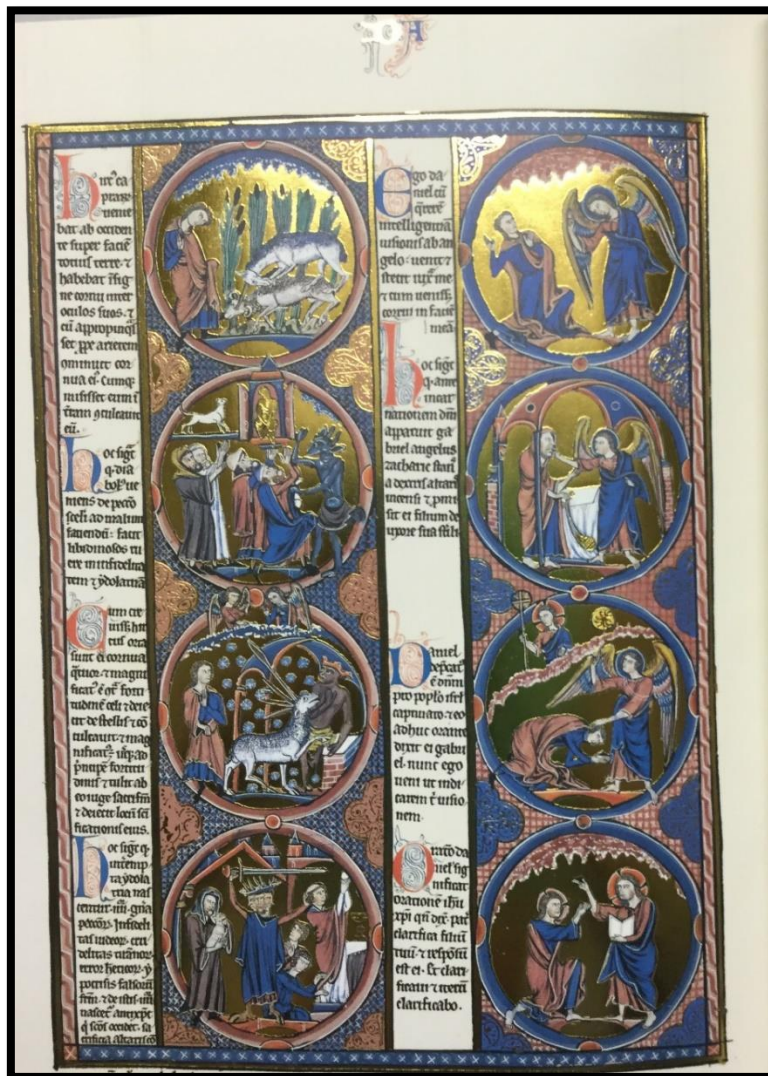 DA
hirc' ca
prarum
venie
bat ab occiden
te super faciē
totius terre · ⁊
habebat
ne cornu inter
oculos suos · ⁊
cū appropinq̄s
set arietem
cor
nua ei' cumq;
misisset eum ī
terram ꝯculcavit
eū ·
hoc sigt̄
q · dia
bol' ve
niens de
ad malum
faciendū · facit
libidinosos ru
ere in infidelita
tem ⁊ ydolatriā
Cum cre
visset hir
cus orta
sunt ei cornua
q̄tuor ⁊ magni
ficat' ē
tudinē celi ⁊ deie
cit de stellis ⁊ cō
culcavit ⁊ mag
nificat' usq; ad
pͥncipē fortitu
dinis ⁊ tulit ab
eo iuge sacrifm̄
⁊ deiecit locū sc̄i
ficationis eius ·
hoc sigt̄ q ·
ydola
tria nas
centur · iiii · gn̄a
infideli
tas iudeor' · cru
delitas
error heticor' · y
pocrisis falsorū
frm̄ · ⁊ de istis · iiii ·
nascet'
q̄ sc̄os occidet · sa
crificia altaris
Ego da
niel cū
q̄rerē
intelligentiā
visionis ab an
gelo · venit ⁊
stetit iuxͣ me
⁊ cum veniss;
corrui in faciē
meā
hoc sigt̄
q · ante
incar
nationem dn̄i
apparuit ga
briel angelus
zacharie stans
a dextris altaris
incensi ⁊ pmi
sit ei filium de
uxore sua
Daniel
depcat'
ē dn̄m
pro popl̄o isrl̄
captivato · ⁊ eo
adhuc orante
dixit ei gabri
el · nunc ego
veni ut indi
carem t' visio
nem ·
Oratio da
niel' sig
nificat
orationē ih̄u
xp̄i qn̄ dx̄ · pat'
clarifica filiū
tuū · ⁊ respōsū
est ei · Et clari
ficavi ⁊ iterū
clarificabo ·